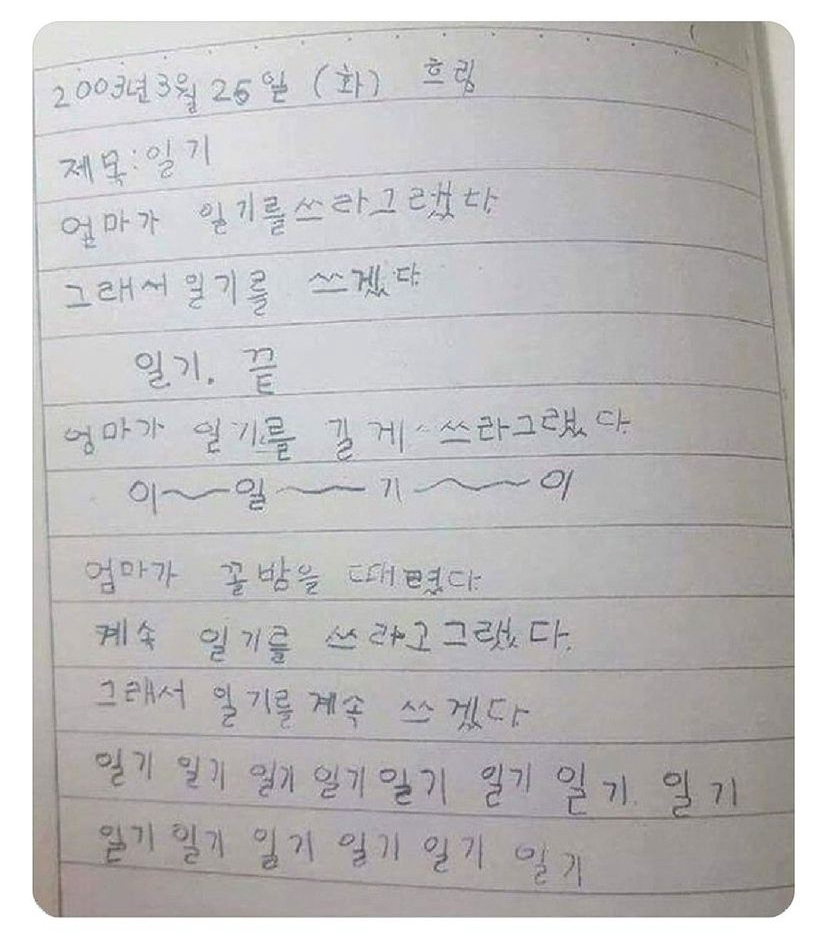 2003년 3월 25일 (화) 흐림
제목:일기
엄마가 일기를쓰라그랬다.
그래서 일기를 쓰겠다.
일기. 끝
엄마가 일기를 길게 쓰라그랬다.
이~일~기~이
엄마가 꿀밤을 때렸다.
계속 일기를 쓰라고그랬다.
그래서 일기를계속 쓰겠다
일기 일기 일기 일기 일기 일기 일기. 일기
일기 일기 일기 일기 일기 일기